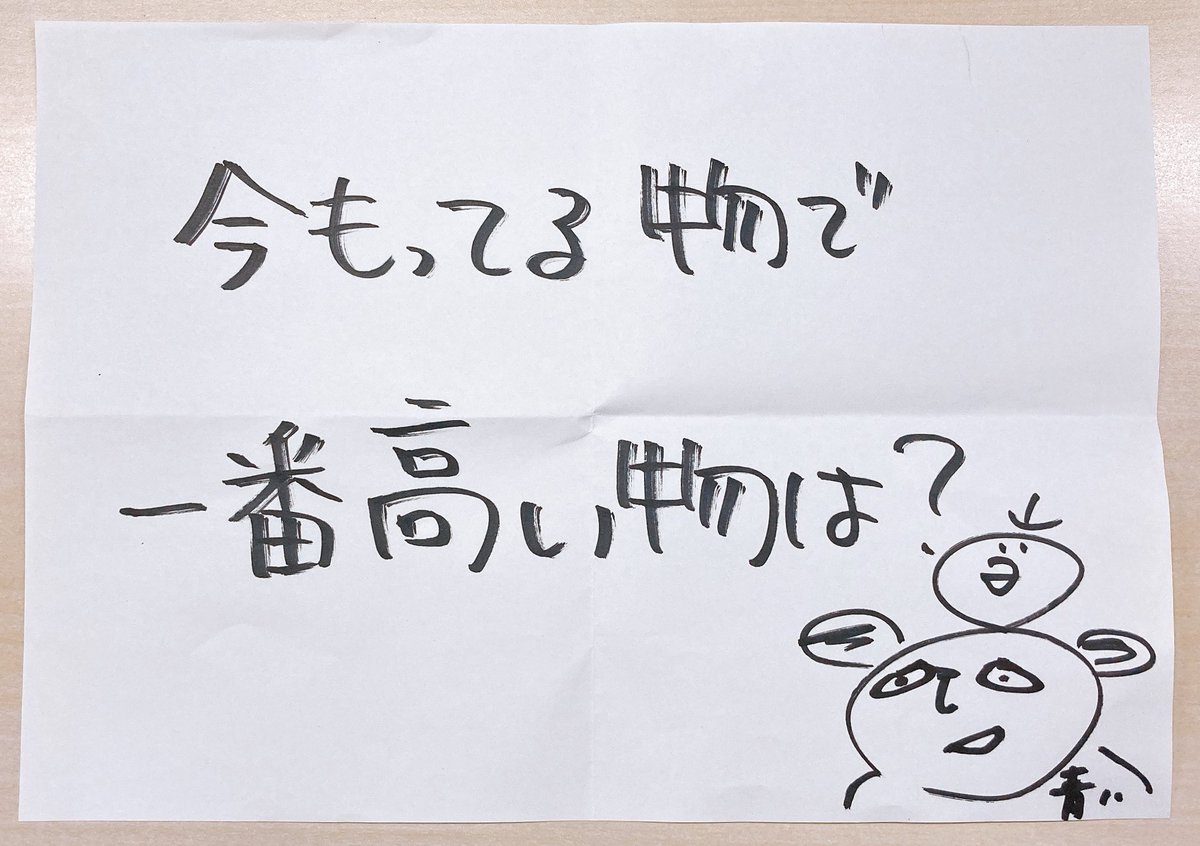 今もってる物で
一番高い物は?
青い